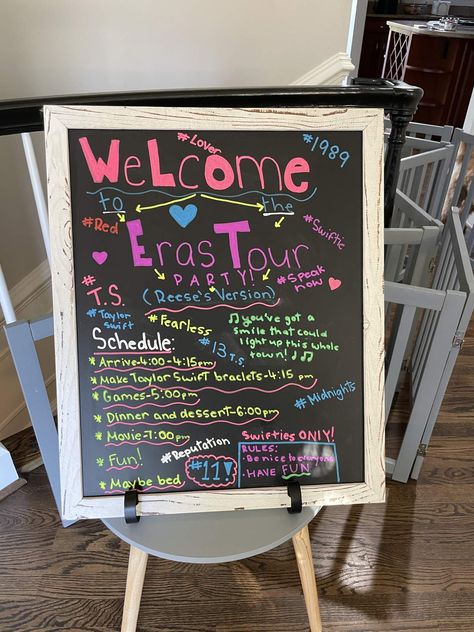 #Lover
#1989
WeLcome
to the
#Red
#Swiftie
Eras Tour
PARTY!
#Speak now
#T.S.
(Reese's Version)
#Taylor swift
#Fearless
you've got a
smile that could
light up this whole
town!
#13 T.S.
Schedule:
* Arrive-4:00-4:15pm
* Make Taylor Swift bracelets-4:15 pm
* Games-5:00pm
* Dinner and dessert-6:00pm
* Movie-7:00pm
* Fun!
* Maybe bed
#Midnights
#Reputation
#11
Swifties ONLY!
RULES:
-Be nice to everyone
-HAVE FUN